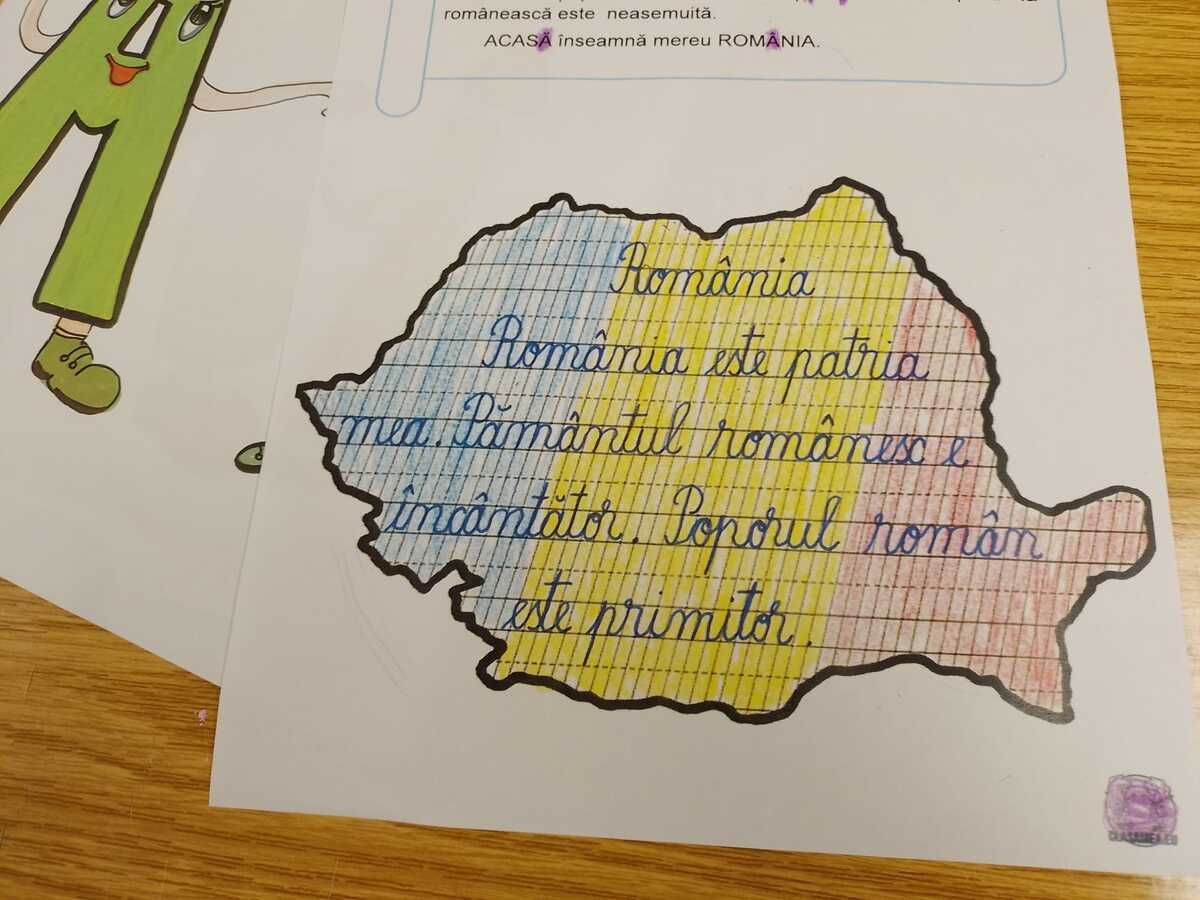 românească este neasemuită.
ACASĂ înseamnă mereu ROMÂNIA.
România
România este patria
mea. Pământul românesc e
încântător. Poporul român
este primitor.
CLASAMEA.EU